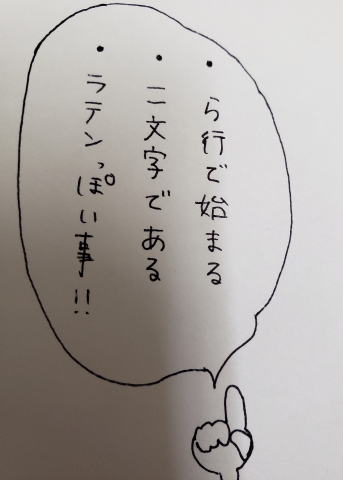 ・ら行で始まる
・二文字である
・ラテンっぽい事!!